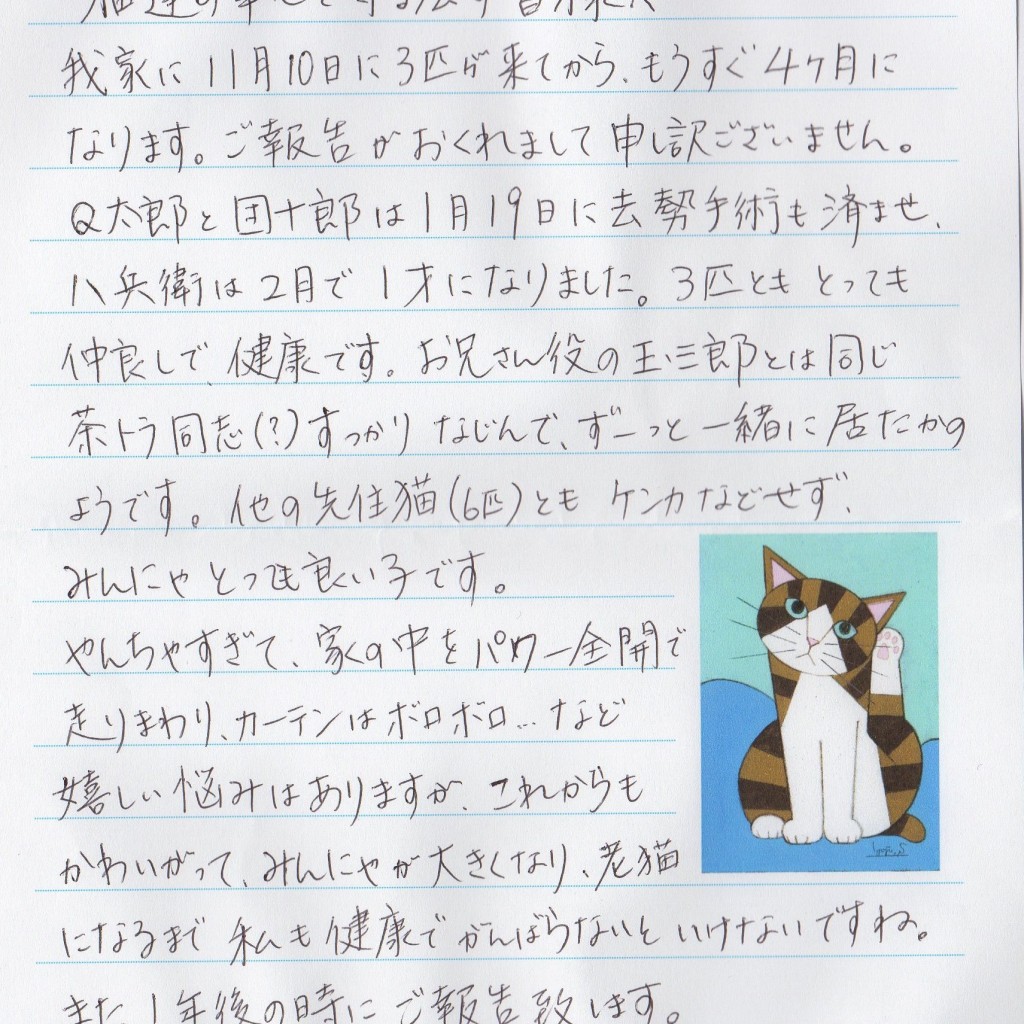 我家に11月10日に3匹が来てから、もうすぐ4ケ月に
なります。ご報告がおくれまして申し訳ございません。
Q太郎と団十郎は1月19日に去勢手術も済ませ、
八兵衛は2月で1才になりました。3匹とも とっても
仲良しで、健康です。お兄さん役の玉三郎とは同じ
茶トラ同志(?)すっかり なじんで、ずーっと一緒に居たかの
ようです。他の先住猫(6匹)とも ケンカなどせず、
みんにゃ とっても良い子です。
やんちゃすぎて、家の中をパワー全開で
走りまわり、カーテンはボロボロ…など
嬉しい悩みはありますが、これからも
かわいがって、みんにゃが大きくなり、老猫
になるまで 私も健康で がんばらないと いけないですね。
また、1年後の時に ご報告致します。